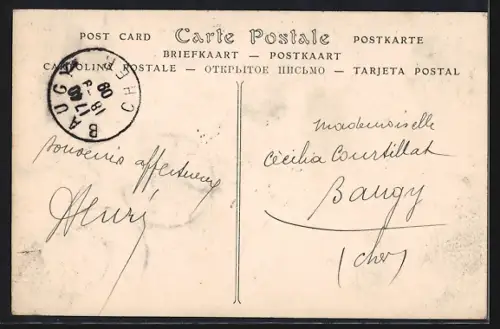 POST CARD Carte Postale POSTKARTE
BRIEFKAART — POSTKAART
CARTOLINA POSTALE — ОТКРЫТОЕ ПИСЬМО — TARJETA POSTAL
BAUGY CHER
18
08
souvenir affectueux
Henri
mademoiselle
Cécilia Courtillat
Baugy
(cher)